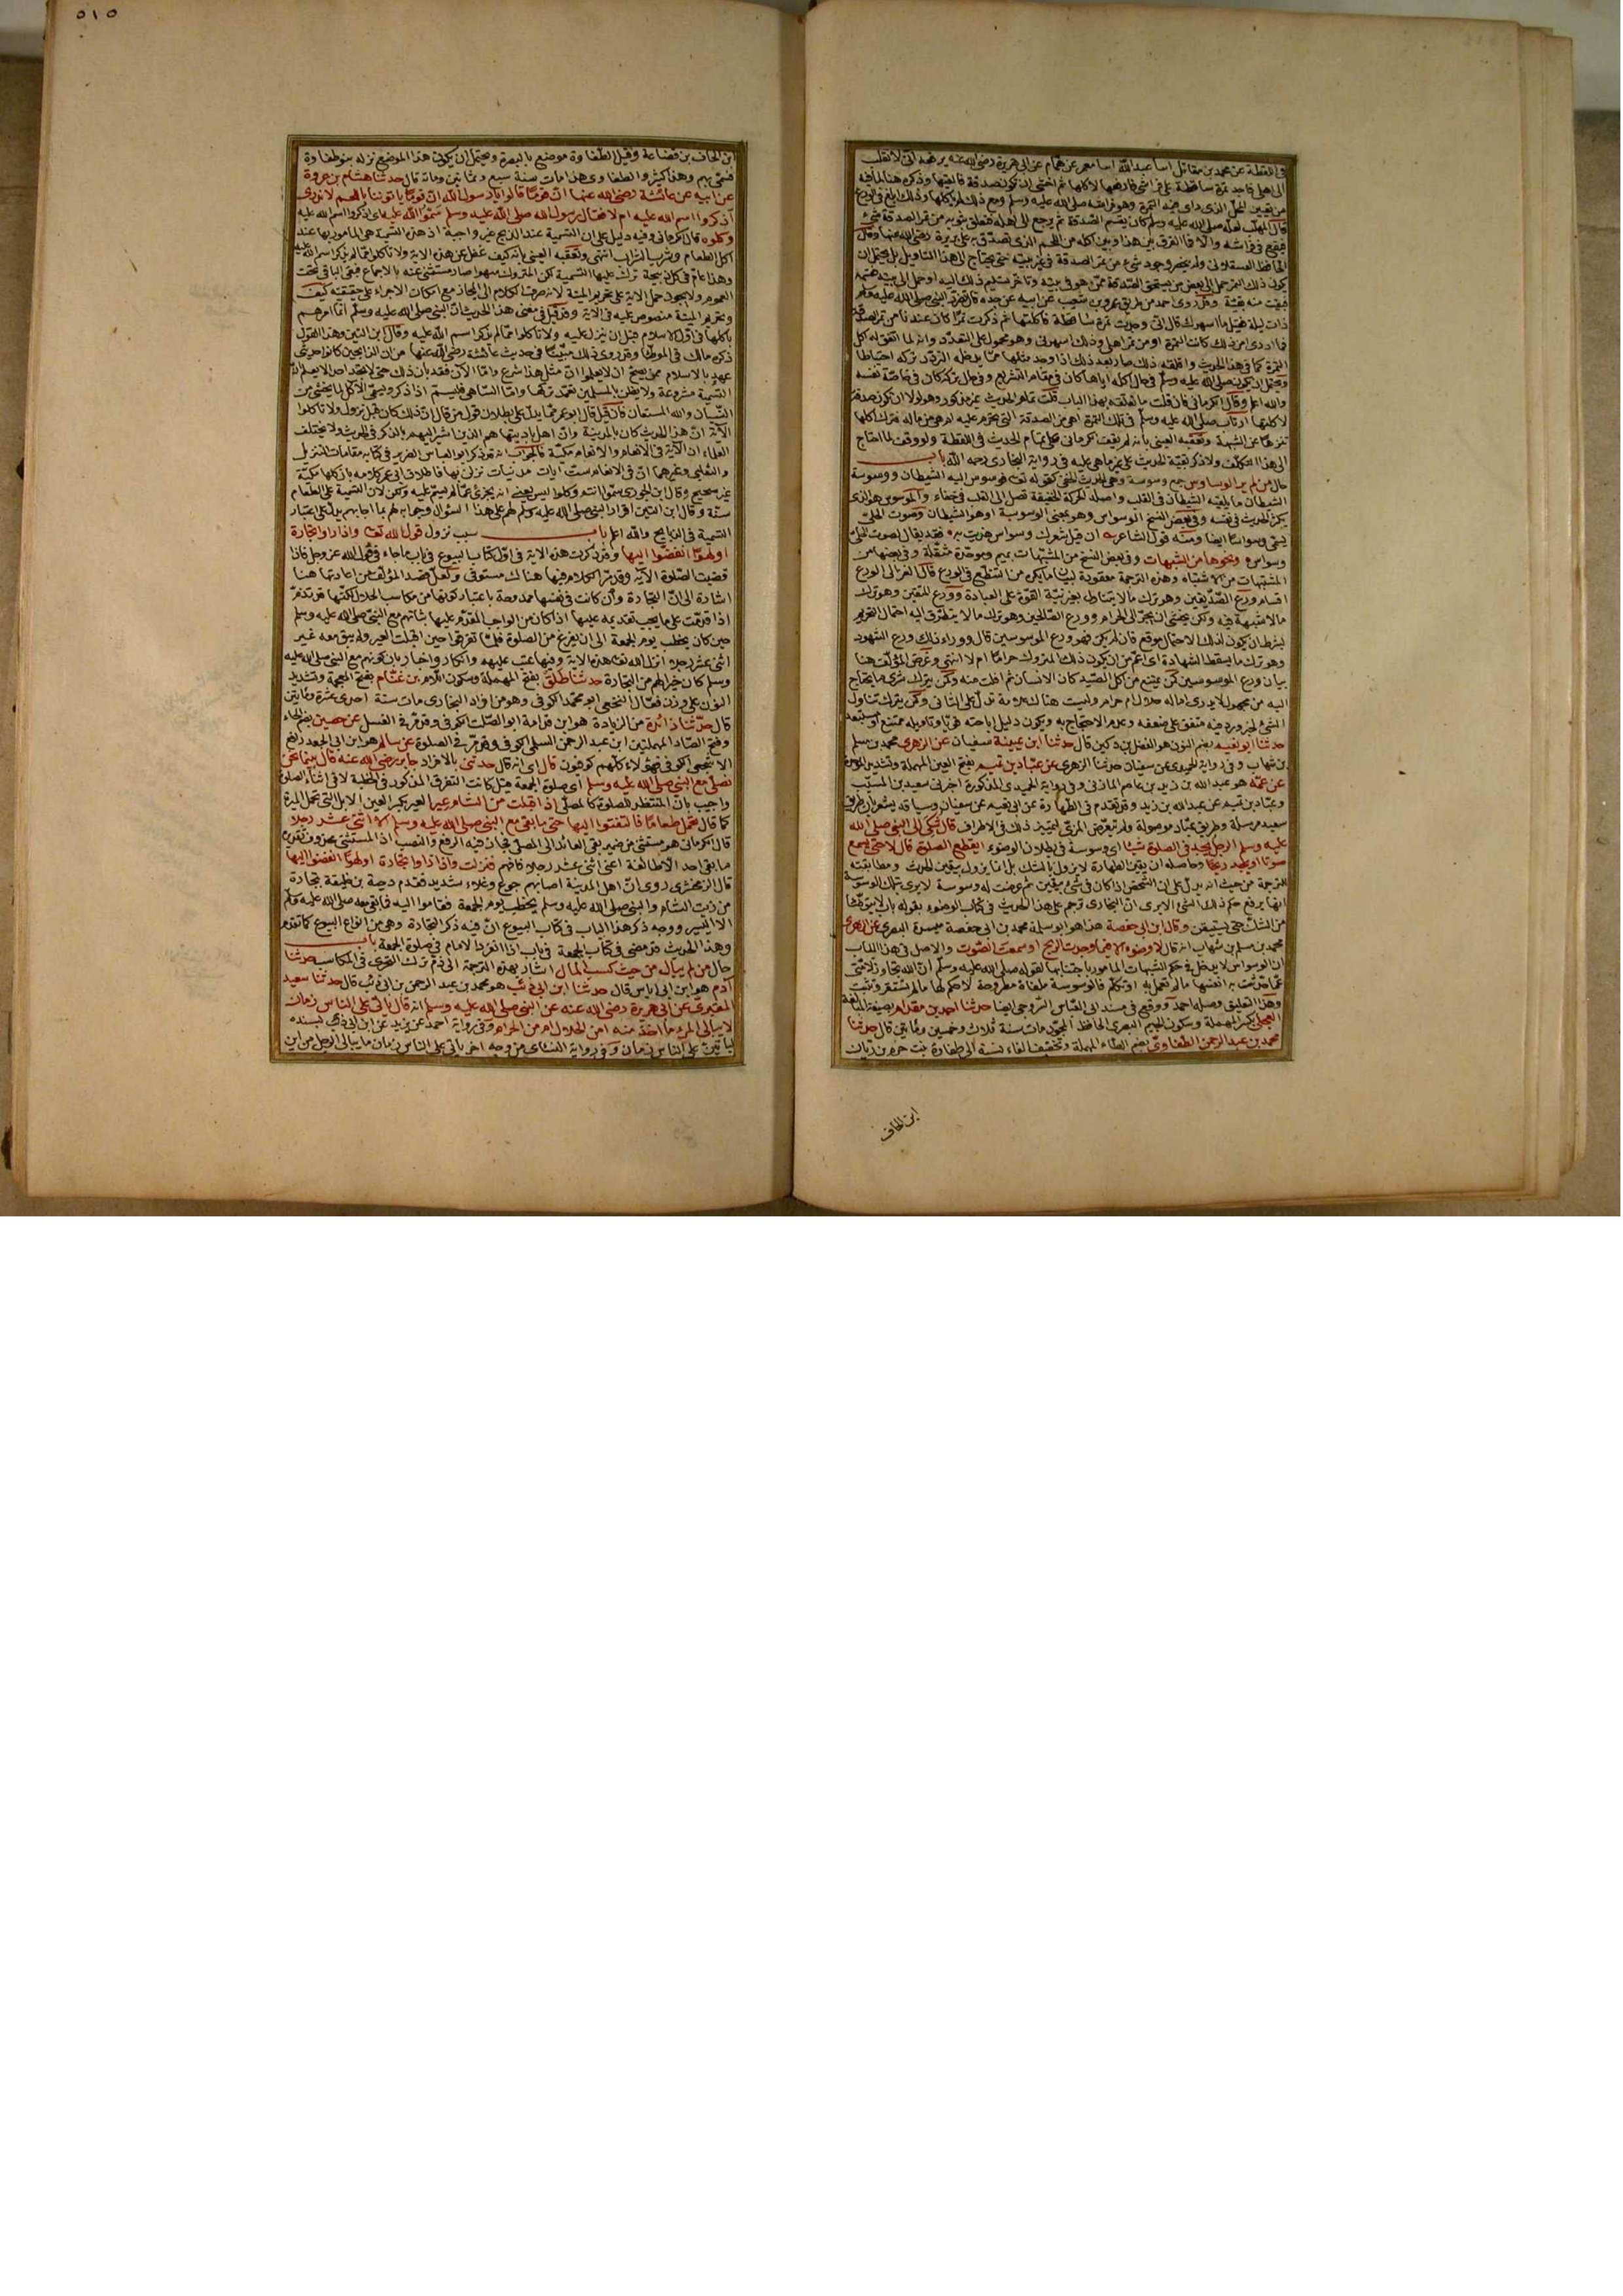 ٥١٥
في اللقطة عن محمد بن مقاتل انبا عبد الله انبا معمر عن همام عن ابي هريرة رضي الله عنه يرفعه اني لانقلب
الى اهلي فاجد تمرة ساقطة على فراشي فارفعها لاكلها ثم اخشى ان تكون صدقة فالقيها وذكره هنا لما فيه
من تعيين المحل الذي راى فيه التمرة وهو فراشه صلى الله عليه وسلم ومع ذلك لم ياكلها وذلك ابلغ في الورع
قال المهلب لعله صلى الله عليه وسلم كان يقسم الصدقة ثم يرجع الى اهله فتعلق بثوبه من تمر الصدقة شيء
فيقع في فراشه والا فما الفرق بين هذا وبين اكله من اللحم الذي تصدق به على بريرة رضي الله عنها وقال
الحافظ العسقلاني ولم ينحصر وجود شيء من تمر الصدقة في غير بيته حتى يحتاج الى هذا التاويل بل يحتمل ان
يكون ذلك التمر حمل الى بعض من يستحق الصدقة ممن هو في بيته وتاخر تسليم ذلك اليه او حمل الى بيته فقسمه
فبقيت منه بقية وقد روى احمد من طريق عمرو بن شعيب عن ابيه عن جده قال تضور النبي صلى الله عليه وسلم
ذات ليلة فقيل ما اسهرك قال اني وجدت تمرة ساقطة فاكلتها ثم ذكرت تمرا كان عندنا من تمر الصدقة
فما ادري امن ذلك كانت التمرة او من تمر اهلي فذلك اسهرني وهو محمول على التعدد وانه لما اتفق له اكل
التمرة كما في هذا الحديث واقلقه ذلك صار بعد ذلك اذا وجد مثلها مما يدخله التردد تركه احتياطا
ويحتمل ان يكون صلى الله عليه وسلم في حال اكله اياها كان في مقام التشريع وفي حال تركه كان في خاصة نفسه
والله اعلم وقال الكرماني فان قلت ما تعلقه بهذا الباب قلت تمام الحديث غير مذكور وهو لولا ان تكون صدقة
لاكلتها ارتاب صلى الله عليه وسلم في تلك التمرة اهي من الصدقة التي تحرم عليه ام هي من ماله فترك اكلها
تنزها عن الشبهة وتعقبه العيني بانه لم يقف الكرماني على تمام الحديث في اللقطة ولو وقف لما احتاج
الى هذا التكلف ولا ذكر بقية الحديث على غير ما هي عليه في رواية البخاري رحمه الله باب
حال من لم ير الوساوس جمع وسوسة وهي الحديث الخفي كقوله تعالى فوسوس اليه الشيطان ووسوسة
الشيطان ما يلقيه الشيطان في القلب واصله الحركة الخفيفة تصل الى القلب في خفاء والموسوس هو الذي
يكثر الحديث في نفسه وفي بعض النسخ الوسواس وهو بمعنى الوسوسة او هو الشيطان وصوت الحلي
يسمى وسواسا ايضا ومنه قول الشاعر
وسواس ونحوها من الشبهات وفي بعض النسخ من المشبهات بميم وموحدة مثقلة وفي بعضها من
المشتبهات من الاشتباه وهذه الترجمة معقودة لبيان ما يكره من التنطع في الورع قال الغزالي الورع
اقسام ورع الصديقين وهو ترك ما لا يتناول بغير نية القوة على العبادة وورع المتقين وهو ترك
ما لا شبهة فيه ولكن يخشى ان يجر الى الحرام وورع الصالحين وهو ترك ما لا يتطرق اليه احتمال التحريم
بشرط ان يكون لذلك الاحتمال موقع فان لم يكن فهو ورع الموسوسين قال ووراء ذلك ورع الشهود
وهو ترك ما يسقط الشهادة اي اعم من ان يكون ذلك المتروك حراما ام لا انتهى وغرض المؤلف هنا
بيان ورع الموسوسين كمن يمتنع من اكل الصيد كان الانسان ثم افلت منه وكمن يترك شرى ما يحتاج
اليه من مجهول لا يدري اماله حلال ام حرام وليست هناك علامة تدل على الثاني وكمن يترك تناول
الشيء لخبر ورد فيه متفق على ضعفه وعدم الاحتجاج به ويكون دليل اباحته قويا وتاويله ممتنع او مستبعد
حدثنا ابو نعيم بضم النون هو الفضل بن دكين قال حدثنا ابن عيينة سفيان عن الزهري محمد بن مسلم
بن شهاب وفي رواية الحميدي عن سفيان حدثنا الزهري عن عباد بن تميم بفتح العين المهملة وتشديد الموحدة
عن عمه هو عبد الله بن زيد بن عاصم المازني وفي رواية الحميدي المذكورة اخبرني سعيد بن المسيب
وعباد بن تميم عن عبد الله بن زيد وقد تقدم في الطهارة عن ابي نعيم عن سفيان وسياقه يشعر بان طريق
سعيد مرسلة وطريق عباد موصولة ولم يتعرض المزي لتمييز ذلك في الاطراف قال شكي الى النبي صلى الله
عليه وسلم الرجل يجد في الصلوة شيئا اي وسوسة في بطلان الوضوء ايقطع الصلوة قال لا حتى يسمع
صوتا او يجد ريحا وحاصله ان يقين الطهارة لا يزول بالشك بل انما يزول بيقين الحدث ومطابقته
للترجمة من حيث انه يدل على ان الشخص اذا كان في شيء بيقين ثم عرضت له وسوسة لا يرى تلك الوسوسة
انها يرفع حكم ذلك الشيء الا يرى ان البخاري ترجم على هذا الحديث في كتاب الوضوء بقوله باب لا يتوضأ
من الشك حتى يستيقن وقال ابن ابي حفصة هذا هو ابو سلمة محمد بن ابي حفصة ميسرة البصري عن الزهري
محمد بن مسلم بن شهاب انه قال لا وضوء الا فيما وجدت الريح او سمعت الصوت والاصل في هذا الباب
ان الوسواس لا يدخل في حكم الشبهات المامور باجتنابها لقوله صلى الله عليه وسلم ان الله تجاوز لامتي
عما حدثت به انفسها ما لم تعمل به او تتكلم فالوسوسة ملغاة مطروحة لا حكم لها ما لم تستقر وتثبت
وهذا التعليق وصله احمد ووقع في مسند ابي العباس السروجي ايضا حدثنا احمد بن مقدام بصيغة المبالغة
العجلي بكسر المهملة وسكون الجيم البصري الحافظ المجود مات سنة ثلاث وخمسين ومائتين قال حدثنا
محمد بن عبد الرحمن الطفاوي بضم الطاء المهملة وتخفيف الفاء نسبة الى طفاوة بنت جرم بن زبان
ابن الحاف
ابن الحاف بن قضاعة وقيل الطفاوة موضع بالبصرة ويحتمل ان يكون هذا الموضع نزله بنو طفاوة
فسمي بهم وهذا كثير والطفاوي هذا مات سنة سبع وثمانين ومائة قال حدثنا هشام بن عروة
عن ابيه عن عائشة رضي الله عنها ان قوما قالوا يا رسول الله ان قوما ياتوننا باللحم لا ندري
اذكروا اسم الله عليه ام لا فقال رسول الله صلى الله عليه وسلم سموا الله عليه اي اذكروا اسم الله عليه
وكلوه قال الكرماني وفيه دليل على ان التسمية عند الذبح غير واجبة اذ هذه التسمية هي المامور بها عند
اكل الطعام وشرب الشراب انتهى وتعقبه العيني بانه كيف غفل عن هذه الاية ولا تاكلوا مما لم يذكر اسم الله عليه
وهذا عام في كل ذبيحة ترك عليها التسمية لكن المتروك سهوا صار مستثنى عنه بالاجماع فبقي الباقي تحت
العموم ولا يجوز حمل الاية على تحريم الميتة لانه صرف الكلام الى المجاز مع امكان الاجراء على حقيقته كيف
وتحريم الميتة منصوص عليه في الاية وقد قيل في معنى هذا الحديث ان النبي صلى الله عليه وسلم انما امرهم
باكلها في اول الاسلام قبل ان ينزل عليه ولا تاكلوا مما لم يذكر اسم الله عليه وقال ابن التين وهذا القول
ذكره مالك في الموطا وقد روي ذلك مبينا في حديث عائشة رضي الله عنها من ان الذابحين كانوا حديثي
عهد بالاسلام ممن يصح ان لا يعلموا ان مثل هذا شرع واما الان فقد بان ذلك حتى لا تجد احدا لا يعلم ان
التسمية مشروعة ولا يظن بالمسلمين تعمد تركها واما الساهي فليسم اذا ذكر ويسمي الاكل لما يخشى من
النسيان والله المستعان فان قيل قال ابو عمر مما يدل على بطلان قول من قال ان ذلك كان قبل نزول ولا تاكلوا
الاية ان هذا الحديث كان بالمدينة وان اهل باديتها هم الذين اشير اليهم بالذكر في الحديث ولا يختلف
العلماء ان الاية في الانعام والانعام مكية فالجواب انه قد ذكر ابو العباس الضرير في كتابه مقامات التنزيل
والثعلبي وغيرهما ان في الانعام ست ايات مدنيات نزلن بها فاطلاق ابي عمر كلامه بان كلها مكية
غير صحيح وقال ابن الجوزي سموا انتم وكلوا ليس يعني انه يجزئ عما لم يسم عليه ولكن لان التسمية على الطعام
سنة وقال ابن التين اقرار النبي صلى الله عليه وسلم لهم على هذا السؤال وجوابه لهم بما اجابهم يدل على اعتبار
التسمية في الذبايح والله اعلم باب سبب نزول قول الله تعالى واذا راوا تجارة
او لهوا انفضوا اليها وقد ذكرت هذه الاية في اول كتاب البيوع في باب ما جاء في قول الله عز وجل فاذا
قضيت الصلوة الاية وقد مر الكلام فيها هناك مستوفى ولعل قصد المؤلف من اعادتها هنا
اشارة الى ان التجارة وان كانت في نفسها ممدوحة باعتبار كونها من مكاسب الحلال لكنها قد تذم
اذا قدمت على ما يجب تقديمه عليها اذا كان من الواجب المقدم عليها شانهم مع النبي صلى الله عليه وسلم
حين كان يخطب يوم الجمعة الى ان يفرغ من الصلوة فلما تفرقوا حين اقبلت العير ولم يبق معه غير
اثني عشر رجلا انزل الله تعالى هذه الاية وفيها عتب عليهم وانكار واخبار بان كونهم مع النبي صلى الله عليه
وسلم كان خيرا لهم من التجارة حدثنا طلق بفتح المهملة وسكون اللام بن غنام بفتح المعجمة وتشديد
النون على وزن فعال النخعي ابو محمد الكوفي وهو من افراد البخاري مات سنة احدى عشرة ومائتين
قال حدثنا زائدة من الزيادة هو ابن قدامة ابو الصلت الكوفي وقد مر في الغسل عن حصين بضم الحاء
وفتح الصاد المهملتين ابن عبد الرحمن السلمي الكوفي وقد مر في الصلوة عن سالم هو ابن ابي الجعد رافع
الاشجعي الكوفي فهؤلاء كلهم كوفيون قال اي انه قال حدثني بالافراد جابر رضي الله عنه قال بينما نحن
نصلي مع النبي صلى الله عليه وسلم اي صلوة الجمعة قيل كانت التفرق المذكور في الخطبة لا في اثناء الصلوة
واجيب بان المنتظر للصلوة كالمصلي اذ اقبلت من الشام عير العير بكسر العين الابل التي تحمل الميرة
كما قال تحمل طعاما فالتفتوا اليها حتى ما بقي مع النبي صلى الله عليه وسلم الا اثني عشر رجلا
قال الكرماني هو مستثنى من ضمير بقي العائد الى المصلي فجاز فيه الرفع والنصب اذا المستثنى محذوف تقديره
ما بقي احد الا طائفة اعني اثني عشر رجلا فافهم فنزلت واذا راوا تجارة او لهوا انفضوا اليها
قال الزمخشري روي ان اهل المدينة اصابهم جوع وغلاء شديد فقدم دحية بن خليفة بتجارة
من زيت الشام والنبي صلى الله عليه وسلم يخطب يوم الجمعة فقاموا اليه فما بقي معه صلى الله عليه وسلم
الا اليسير ووجه ذكر هذا الباب في كتاب البيوع ان فيه ذكر التجارة وهي من انواع البيوع كما تقدم
وهذا الحديث قد مضى في كتاب الجمعة في باب اذا انفرد الامام في صلوة الجمعة باب
حال من لم يبال من حيث كسب المال اشار بهذه الترجمة الى ذم ترك التحري في المكاسب حدثنا
آدم هو ابن ابي اياس قال حدثنا ابن ابي ذئب هو محمد بن عبد الرحمن بن ابي ذئب قال حدثنا سعيد
المقبري عن ابي هريرة رضي الله عنه عن النبي صلى الله عليه وسلم انه قال ياتي على الناس زمان
لا يبالي المرء ما اخذ منه امن الحلال ام من الحرام وفي رواية احمد عن يزيد عن ابن ابي ذئب بسنده
لياتين على الناس زمان وفي رواية النسائي من وجه اخر ياتي على الناس زمان ما يبالي الرجل من اين